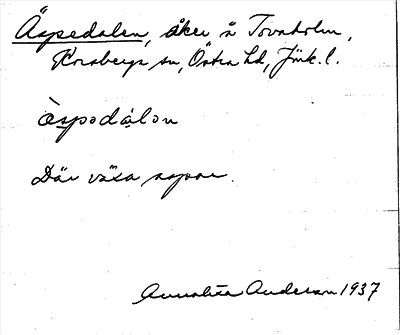 Äspedalen, åker å Tovaholm,
Korsberga sn, Östra hd, Jönk. l.
æ̀spodálon
Där växa aspar.
Annalisa Anderson 1937